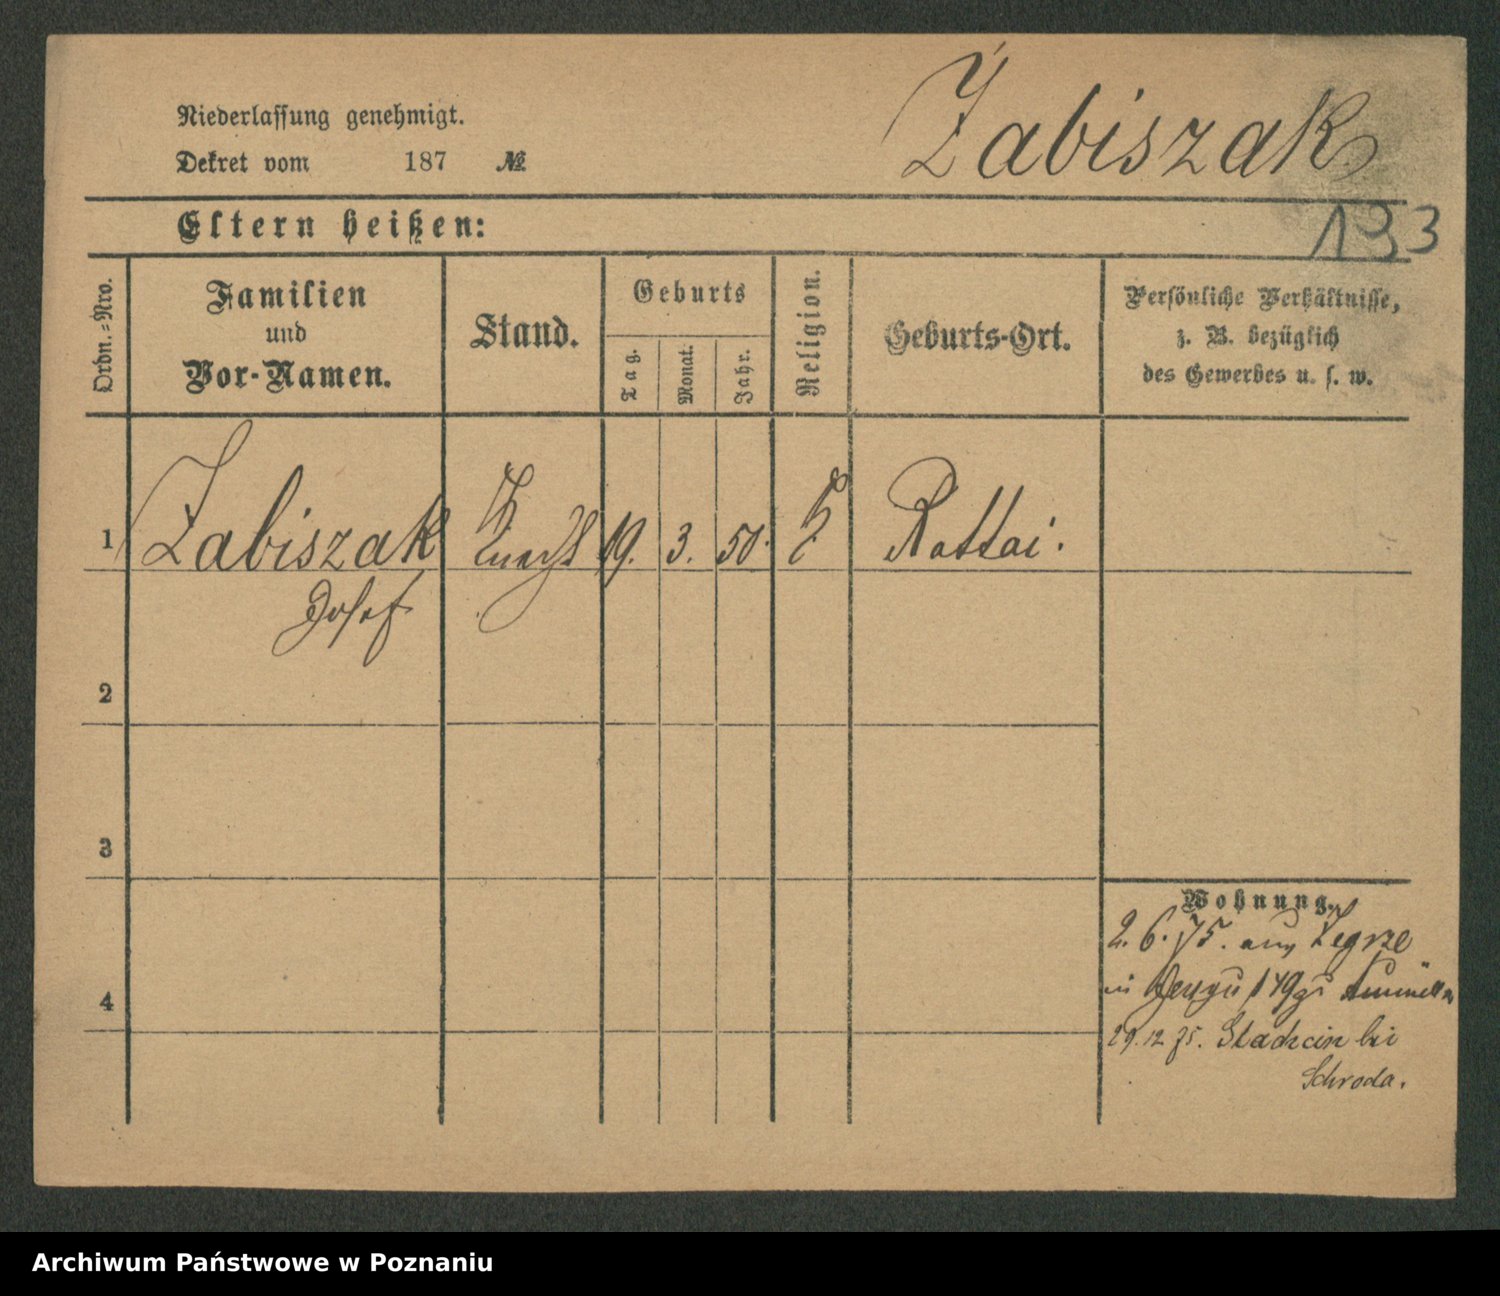 Niederlassung genehmigt.
Dekret vom 187 №
Żabiszak
133
Eltern heißen:
Ordn.-Nro.
Familien
und
Vor-Namen.
Stand.
Geburts
Tag.
Monat.
Jahr.
Religion.
Geburts-Ort.
Persönliche Verhältnisse,
z. B. bezüglich
des Gewerbes u. s. w.
1 Żabiszak Knecht 19. 3. 50. k. Rattai.
Josef
2
3
4
Wohnung.
2. 6. 75. aus Zegrze
in
29. 12. 75. bei
Schroda.
Archiwum Państwowe w Poznaniu